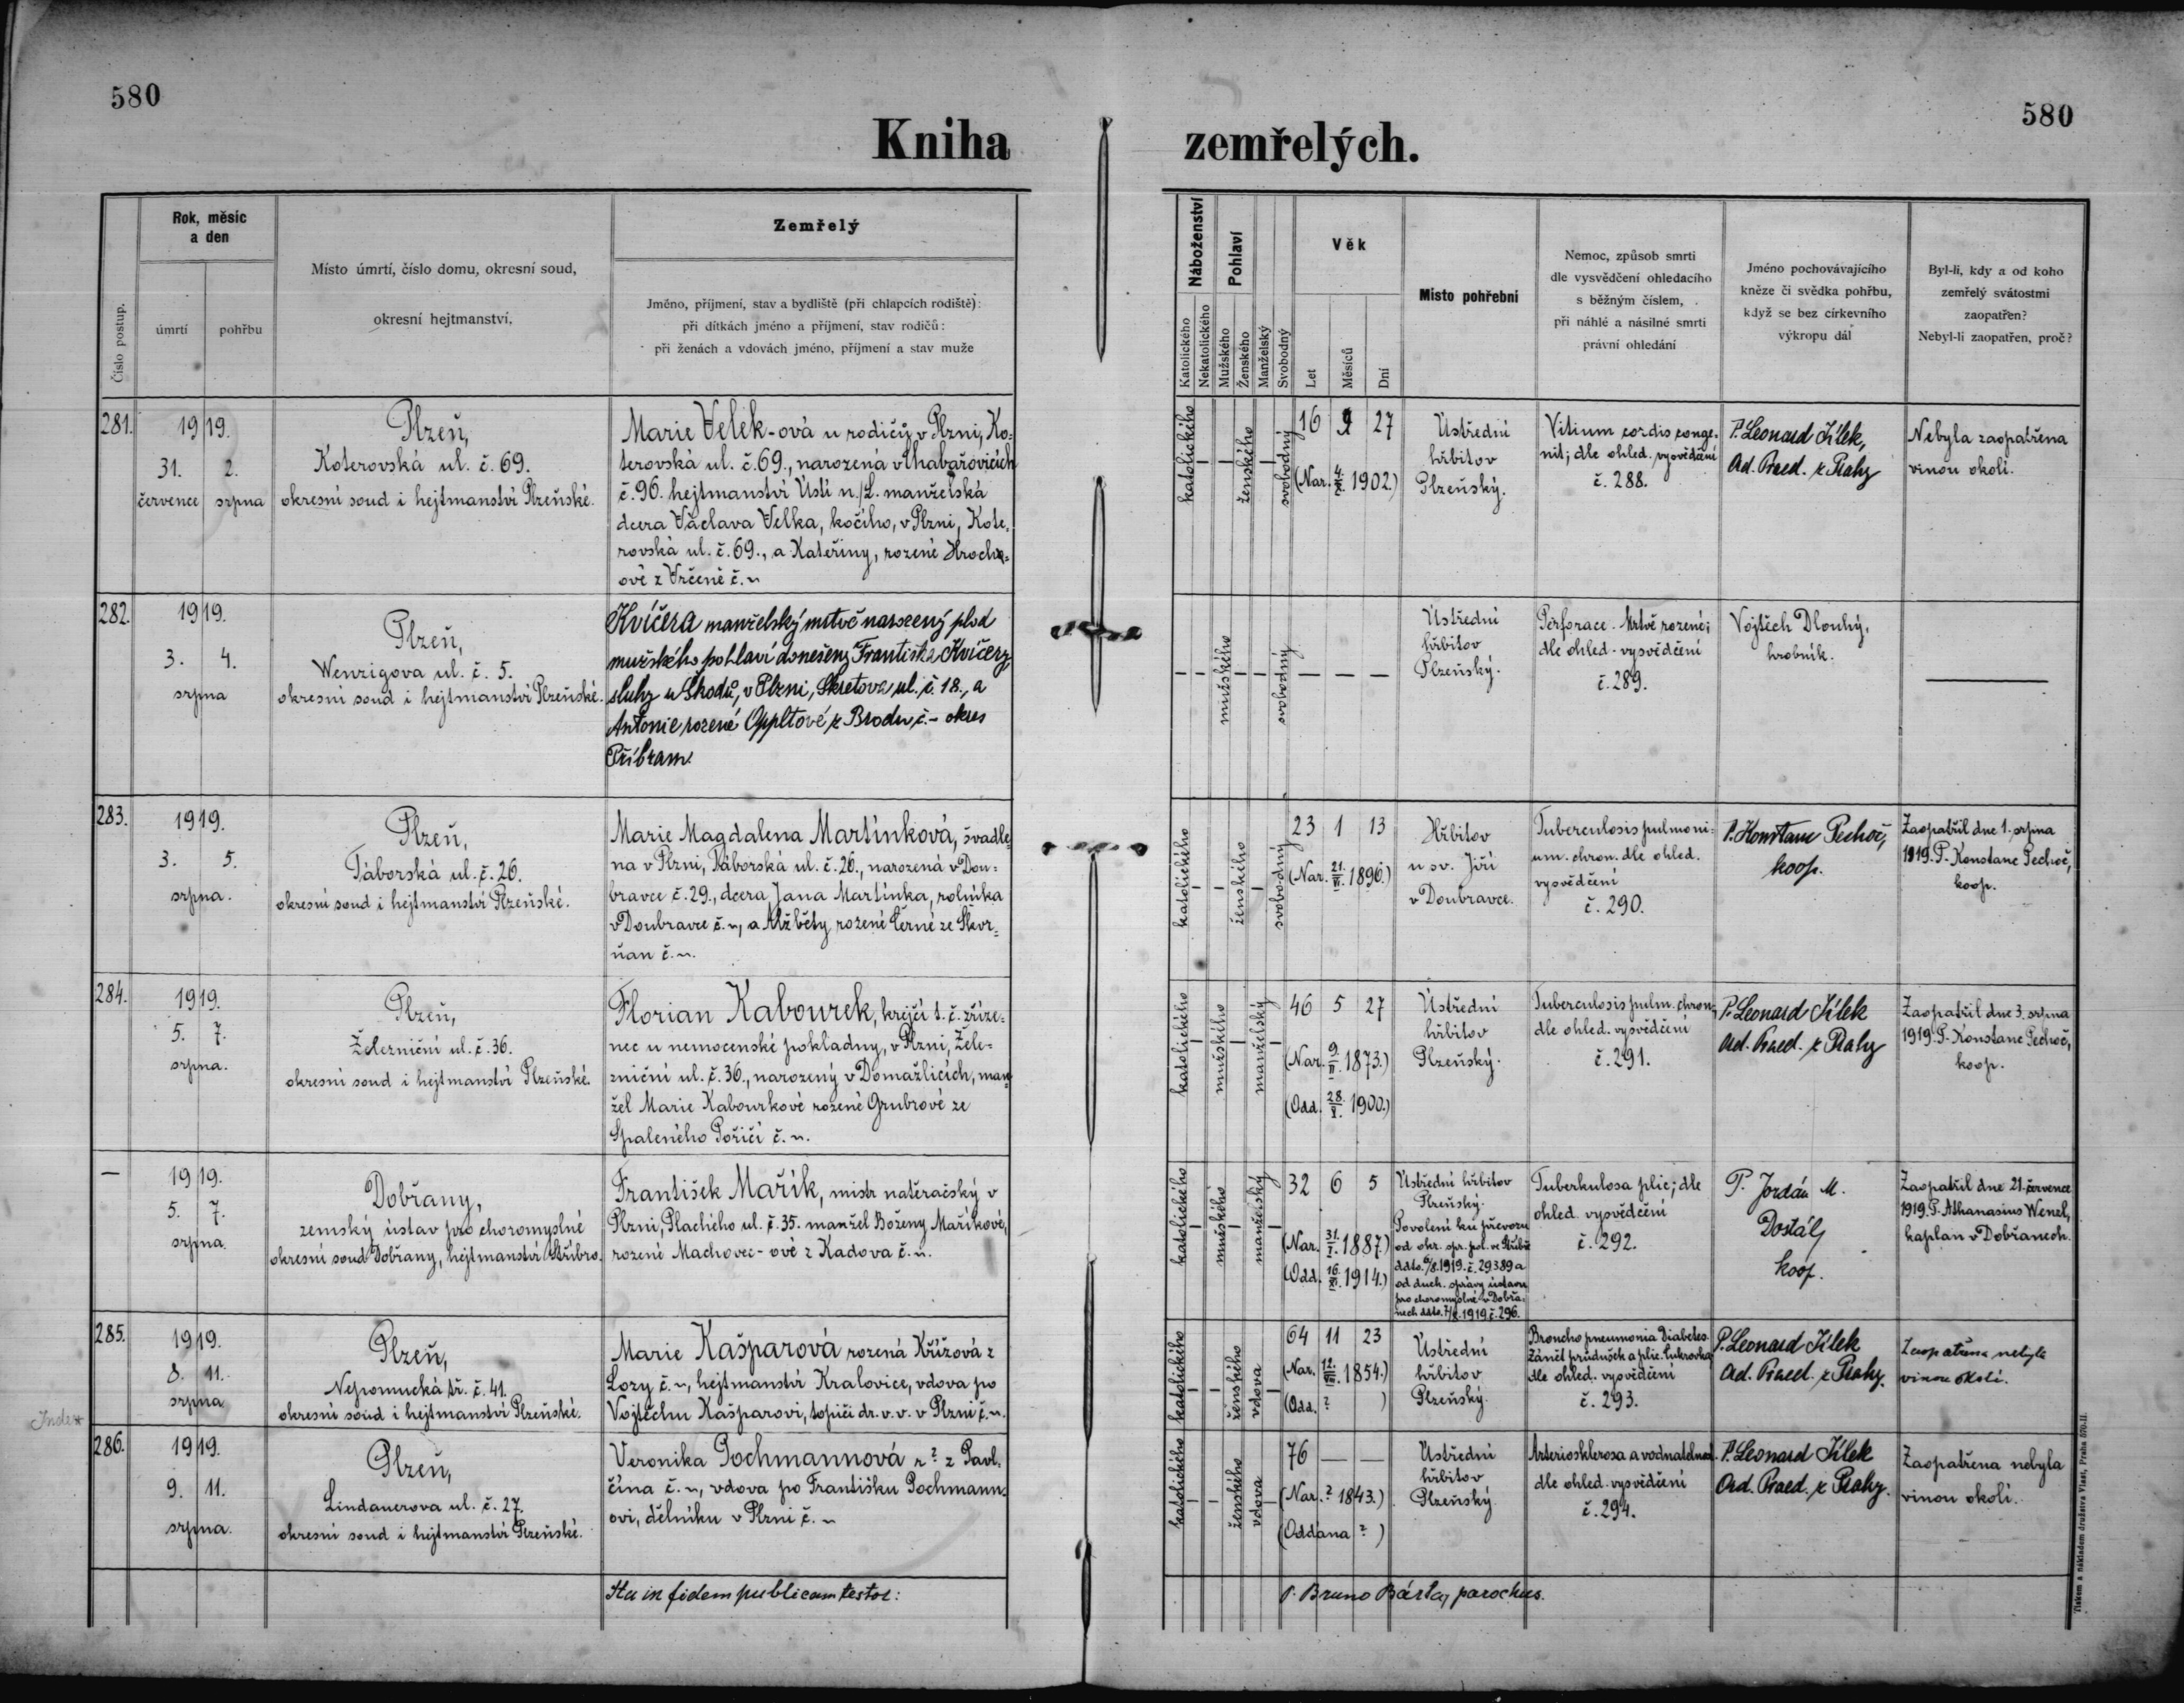 580
580
Kniha
zemřelých.
Číslo postup.
Rok, měsíc
a den
úmrtí
pohřbu
Místo úmrtí, číslo domu, okresní soud,
okresní hejtmanství.
Zemřelý
Jméno, příjmení, stav a bydliště (při chlapcích rodiště):
při dítkách jméno a příjmení, stav rodičů:
při ženách a vdovách jméno, příjmení a stav muže
Náboženství
Katolického
Nekatolického
Pohlaví
Mužského
Ženského
Manželský
Svobodný
Věk
Let
Měsíců
Dní
Místo pohřební
Nemoc, způsob smrti
dle vysvědčení ohledacího
s běžným číslem,
při náhlé a násilné smrti
právní ohledání
Jméno pochovávajícího
kněze či svědka pohřbu,
když se bez církevního
výkropu dál
Byl-li, kdy a od koho
zemřelý svátostmi
zaopatřen?
Nebyl-li zaopatřen, proč?
281.
1919.
31. 2.
července srpna
Plzeň,
Koterovská ul. č. 69.
okresní soud i hejtmanství Plzeňské.
Marie Velek-ová u rodičů v Plzni, Ko=
terovská ul. č. 69., narozená v Chabařovicích
č. 96. hejtmanství Ústí n./L. manželská
dcera Václava Velka, kočího, v Plzni, Kote=
rovská ul. č. 69., a Kateřiny, rozené Hrocho=
ové z Vrčené č. ~
katolického
—
—
ženského
—
svobodný
16 9 27
(Nar. 4. 1902.)
Ústřední
hřbitov
Plzeňský.
Vitium cordis conge=
nit; dle ohled. vysvědčení
č. 288.
P. Leonard Jílek,
Ad. Praed. z Prahy
Nebyla zaopatřena
vinou okolí.
282.
1919.
3. 4.
srpna
Plzeň,
Wenzigova ul. č. 5.
okresní soud i hejtmanství Plzeňské.
Kvíčera manželský mrtvě narozený plod
mužského pohlaví donešený Františka Kvíčery
sluhy u Škodů, v Plzni, Skretova ul. č. 18., a
Antonie rozené Oppltové z Brodu č. – okres
Příbram.
— — mužského — — svobodný — — —
Ústřední
hřbitov
Plzeňský.
Perforace. Mrtvě rozené;
dle ohled. vysvědčení
č. 289.
Vojtěch Dlouhý,
hrobník.
—
283.
1919.
3. 5.
srpna.
Plzeň,
Táborská ul. č. 26.
okresní soud i hejtmanství Plzeňské.
Marie Magdalena Martínková, švadle
na v Plzni, Táborská ul. č. 26., narozená v Dou=
bravce č. 29., dcera Jana Martínka, rolníka
v Doubravce č. ~, a Alžběty rozené Černé ze Skvr=
ňan č. ~.
katolického
—
—
ženského
—
svobodný
23 1 13
(Nar. 21. VI. 1896.)
Hřbitov
u sv. Jiří
v Doubravce.
Tuberculosis pulmoni=
um. chron. dle ohled.
vysvědčení
č. 290.
P. Konstanc Pechoč,
koop.
Zaopatřil dne 1. srpna
1919. P. Konstanc Pechoč,
koop.
284.
1919.
5. 7.
srpna.
Plzeň,
Železniční ul. č. 36.
okresní soud i hejtmanství Plzeňské.
Florian Kabourek, krejčí t. č. zříze=
nec u nemocenské pokladny, v Plzni, Žele=
zniční ul. č. 36., narozený v Domažlicích, man
žel Marie Kabourkové rozené Grubrové ze
Spáleného Poříčí č. ~.
katolického
—
mužského
—
manželský
—
46 5 27
(Nar. 9. II. 1873.)
(Odd. 28. X. 1900.)
Ústřední
hřbitov
Plzeňský.
Tuberculosis pulm. chron;
dle ohled. vysvědčení
č. 291.
P. Leonard Jílek
Ad. Praed. z Prahy
Zaopatřil dne 3. srpna
1919. P. Konstanc Pechoč,
koop.
—
1919.
5. 7.
srpna.
Dobřany,
zemský ústav pro choromyslné
okresní soud Dobřany, hejtmanství Stříbro.
František Mařík, mistr natěračský v
Plzni, Plachého ul. č. 35. manžel Boženy Maříkové,
rozené Machovec-ové z Kadova č. ~.
katolického
—
mužského
—
manželský
—
32 6 5
(Nar. 31. I. 1887.)
(Odd. 16. XI. 1914.)
Ústřední hřbitov
Plzeňský.
Povolení ku převozu
od okr. spr. pol. ve Stříbře
ddto. 6/8. 1919. č. 29389 a
od duch. správy ústavu
pro choromyslné v Dobřa=
nech ddto. 7/8. 1919 č. 296.
Tuberkulosa plic; dle
ohled. vysvědčení
č. 292.
P. Jordán M.
Dostál,
koop.
Zaopatřil dne 21. července
1919. P. Athanasius Wenzl,
kaplan v Dobřanech.
285.
1919.
8. 11.
srpna
Plzeň,
Nepomucká tř. č. 41.
okresní soud i hejtmanství Plzeňské.
Marie Kašparová rozená Křížová z
Lozy č. ~, hejtmanství Kralovice, vdova po
Vojtěchu Kašparovi, topiči dr. v. v. v Plzni č. ~.
katolického
—
—
ženského
vdova
—
64 11 23
(Nar. 1854.)
(Odd. ? )
Ústřední
hřbitov
Plzeňský.
Bronchopneumonia Diabetes.
Zánět průdušek a plic. Cukrovka
dle ohled. vysvědčení
č. 293.
P. Leonard Jílek
Ad. Praed. z Prahy.
Zaopatřena nebyla
vinou okolí.
Index
286.
1919.
9. 11.
srpna.
Plzeň,
Lindauerova ul. č. 27.
okresní soud i hejtmanství Plzeňské.
Veronika Pochmannová r. ? z Pavl=
čína č. ~, vdova po Františku Pochmann=
ovi, dělníku v Plzni č. ~
katolického
—
—
ženského
vdova
—
76 — —
(Nar. ? 1843.)
(Oddána ? )
Ústřední
hřbitov
Plzeňský.
Arteriosklerosa a vodnatelnost.
dle ohled. vysvědčení
č. 294.
P. Leonard Jílek
Ad. Praed. z Prahy.
Zaopatřena nebyla
vinou okolí.
Ita in fidem publicam testor:
P. Bruno Bárta, parochus.
Tiskem a nákladem družstva Vlast, Praha 570-II.